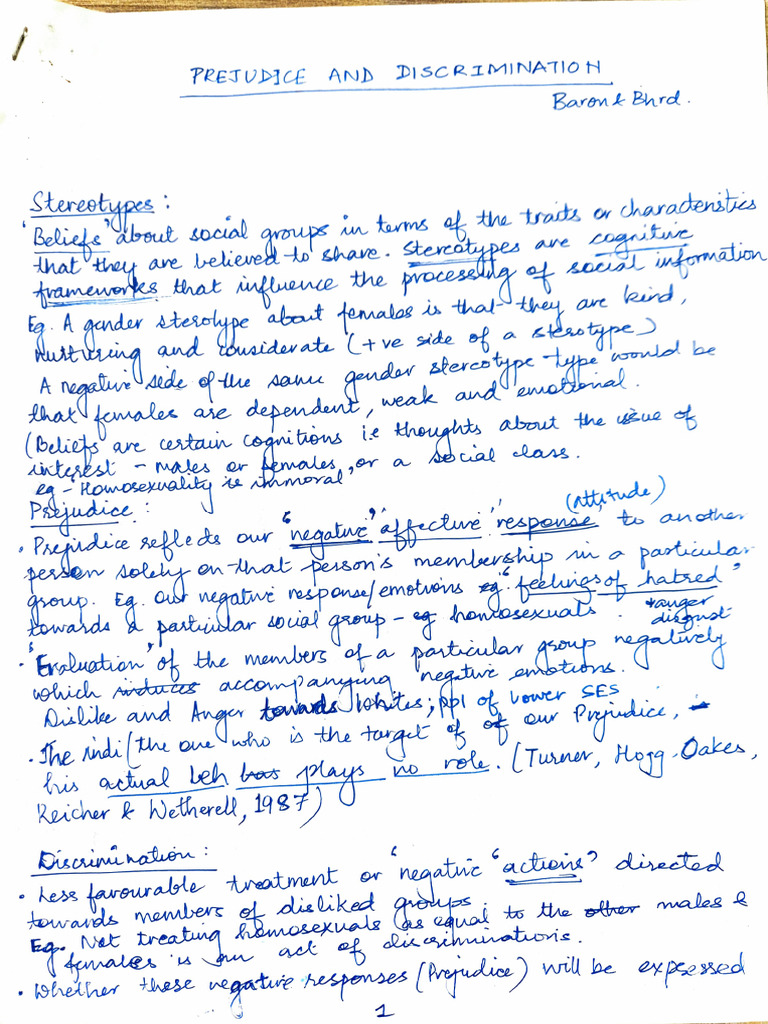 PREJUDICE AND DISCRIMINATION
Baron & Bhrd.
Stereotypes :
'Beliefs' about social groups in terms of the traits or characteristics
that they are believed to share. Stereotypes are cognitive
frameworks that influence the processing of social information
Eg. A gender sterotype about females is that they are kind,
nurturing and considerate (+ve side of a sterotype)
A negative side of the same gender stereotype type would be
that females are dependent, weak and emotional.
(Beliefs are certain cognitions i.e thoughts about the issue of
interest - males or females, or a social class.
eg - 'Homosexuality is immoral'
Prejudice :
(Attitude)
• Prejudice reflects our "negative" "affective" "response to another
person solely on that person's membership in a particular
group. Eg. our negative response/emotions eg. "feelings of hatred"
+ anger
towards a particular social group - eg homosexuals. disgust
• "Evaluation" of the members of a particular group negatively
which induces accompanying negative emotions.
Dislike and Anger towards whites; ppl of lower SES
• The indi (the one who is the target of of our Prejudice,
his actual beh has plays no role. (Turner, Hogg Oakes,
Reicher & Wetherell, 1987)
Discrimination :
• Less favourable treatment or 'negative "actions" directed
towards members of disliked groups.
Eg. Not treating homosexuals as equal to the other males &
females is an act of discriminations.
• Whether these negative responses (Prejudice) will be expsessed
1